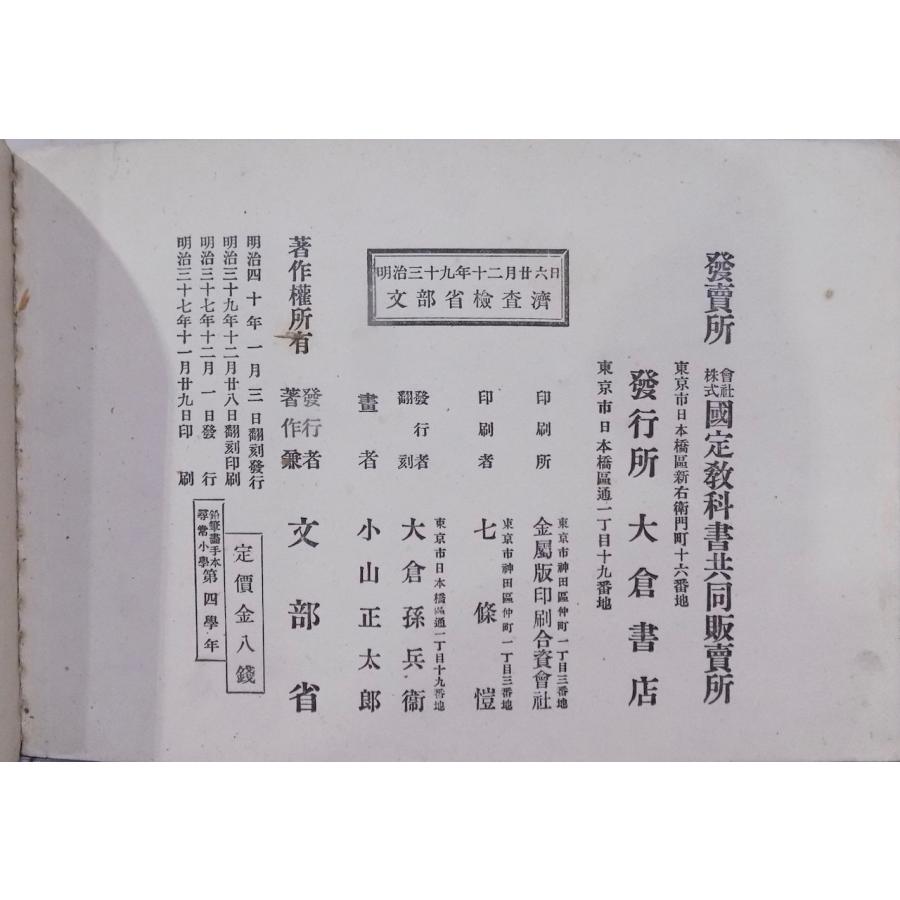 明治三十七年十一月廿九日印刷
明治三十七年十二月一日發行
明治三十九年十二月廿八日翻刻印刷
明治四十年一月三日翻刻發行
尋常小學
鉛筆畫手本
第四學年
定價金八錢
著作權所有
著作兼
發行者
文部省
明治三十九年十二月廿六日
文部省檢査濟
畫者 小山正太郎
翻刻
發行者
大倉孫兵衞
東京市日本橋區通一丁目十九番地
印刷者 七條愷
東京市神田區仲町一丁目三番地
印刷所 金屬版印刷合資會社
東京市神田區仲町一丁目三番地
東京市日本橋區通一丁目十九番地
發行所 大倉書店
東京市日本橋區新右衛門町十六番地
發賣所 株式會社國定敎科書共同販賣所